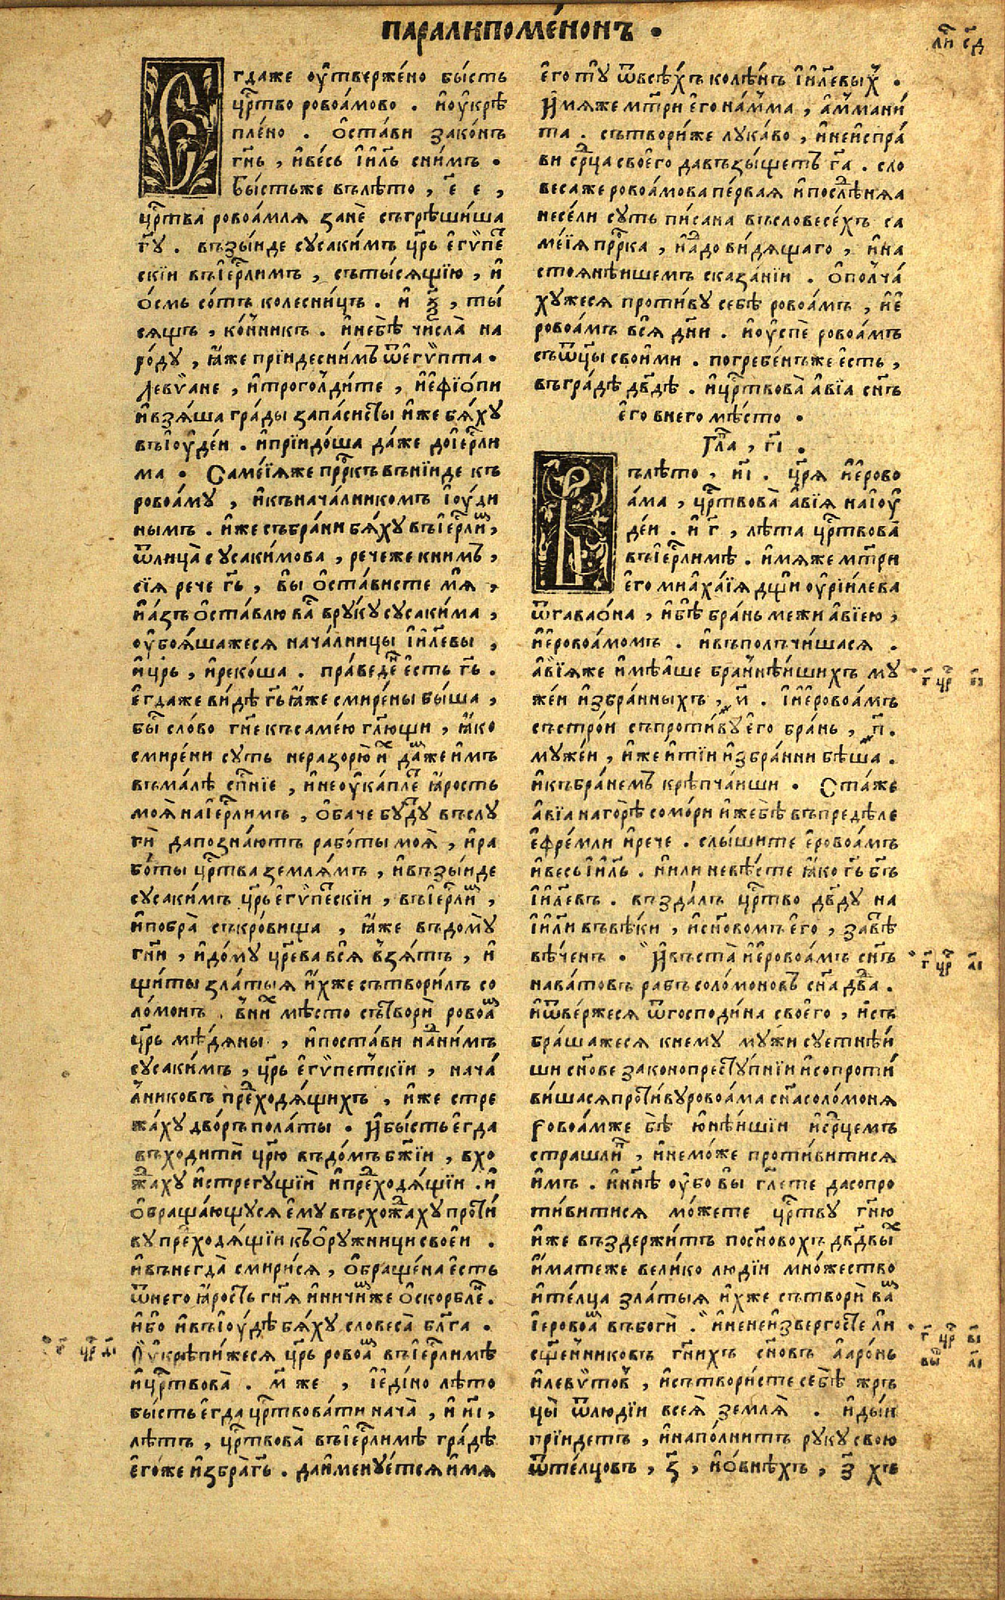 паралипоме́нонъ .
лн҃ сд҃
Егдаже оу҆твержено бы́сть
црⷭ҇тво ровоа́мово . и҆оу҆крѣ
пле́но . ѻ҆ста́ви зако́нъ
гн҃ь , и҆ве́сь і҆и҃ль сни́мъ .
бы́стьже влѣ́то , е҃ е ,
црⷭ҇тва ровоа́мля занѐ съгрѣши́ша
гв҃у . възы́иде сусаки́мъ цр҃ь е҆гѵ́пеⷭ҇
скіи въі҆ерⷭ҇ли́мъ , стыⷭ҇сящїю , и҆
о҆смь со́тъ колесни́цъ . и҆ ѯ҃ , ты́
сящъ , ко́нникъ . и҆небѣ̀ числа̀ на
ро́ду , ꙗ҆́же прїидесни́мъ ѿе҆гѵ́пта .
левѵ́ане , и҆троголди́те , и҆е҆ѳїо́пи
и҆взя́ша гра́ды запасиⷭ҇ты и҆́же бя́ху
въі҆оу҆де́и . и҆прїидо́ша да́же до і҆ерⷭ҇ли
ма . Саме́їяже прⷪ҇ркъ въни́иде къ
ровоа́му , и҆къ нача́лникомъ і҆оу҆ди
нымъ . и҆́же събра́ни бя́ху въі҆ерⷭ҇лиⷨ ,
ѿлица̀ сусаки́мова , рече́же кни́мъ ,
сїя рече гь҃ , вы ѻ҆ста́висте мя̀ ,
и҆а҆́зъ ѻ҆ста́влю ваⷭ҇ вру́ку сусаки́ма ,
оу҆боя́шажеся нача́лницы і҆и҃левы ,
и҆цр҃ь , и҆реко́ша . пра́ведеⷩ҇ е҆́сть гь҃ .
е҆гда́же ви́дѣ гь҃ ꙗ҆́же смире́ны бы́ша ,
быⷭ҇ сло́во гн҃е къ саме́ю гл҃ющи , ꙗ҆́ко
смире́ни су́ть неразорю̀ иⷯ да́же и҆мъ
въма́лѣ сп҃нїе , и҆неоу҆ка́пле ꙗ҆́рость
моя̀ на і҆ерⷭ҇ли́мъ , ѻ҆ба́че бу́дуⷮ въслу
гѝ да позна́ютъ рабо́ты моя̀ , и҆ра
бо́ты црⷭ҇тва земля́мъ , и҆възы́иде
сусаки́мъ цр҃ь е҆гѵ́пеⷭ҇скїи , въі҆ерⷭ҇лиⷨ ,
и҆побра̀ съкро́вища , ꙗ҆́же въдому̀
гн҃и , и҆до́му цр҃ева вся̀ взя́тъ , и҆
щиты̀ златы́я и҆́хже сътвори́лъ со
ломо́нъ . вни́хⷤ мѣ́сто сътвори̏ ровоаⷨ
цр҃ь мѣ́дяны , и҆поста́ви наⷣни́мъ
сусаки́мъ , цр҃ь е҆гѵ́петскїи , нача́
лниковъ преⷣходя́щихъ , и҆́же стре
жа́ху дво́ръ пола́ты . И҆бы́сть е҆гда̀
въходи́ти цр҃ю въдо́мъ бж҃їи , вхо
жⷣаху и҆стрегу́щїи и҆преⷣходя́щїи . и҆
ѻ҆браща́ющуся е҆му̀ въсхожⷣаху проти́
ву преⷣходя́щїи къ ѻ҆ружни́ци свое́и .
и҆внегда̀ смири́ся , ѻ҆браще́на е҆́сть
ѿнего̀ ꙗ҆́рость гн҃я и҆ничи́мже ѻ҆скорбле .
и҆́бо и҆въі҆оу҆дѣ бя́ху словеса̀ бл҃га .
Оу҆крѣпи́жеся цр҃ь ровоаⷨ въі҆ерⷭ҇ли́мѣ
и҆црⷭ҇твова̀ . м҃ же , и҆е҆ди́но лѣ́то
бы́сть е҆гда̀ црⷭ҇твова́ти нача̀ , и҆ зі҃ ,
лѣ́тъ , црⷭ҇твова̀ въі҆ерⷭ҇ли́мѣ гра́дѣ
е҆го́же и҆збра̀ гь҃ . да и҆мену́ется и҆́мя
г҃ црⷭ҇ ді҃
е҆го̀ ту̀ ѿвсѣ́хъ колѣ́нъ і҆и҃левыⷯ .
И҆́мяже мт҃ри е҆го̀ наⷨма , а҆ммани́
та . сътвори́же лука́во , и҆неи҆спра́
ви срⷣца своего̀ да взы́щетъ гⷭ҇а . сло
веса́же ровоа́мова пе́рвая и҆послѣⷣняя
несе́ли су́ть пи́сана въсловесе́хъ са
ме́їя прⷪ҇рка , и҆а҆до ви́дящаго , и҆на
стоянѣ́ишемъ сказа́нїи . ѻ҆полча́
ху́жеся проти́ву себѣ̀ ровоа́мъ , и҆е҆
ровоа́мъ вся̀ дн҃и . и҆оу҆спѐ ровоа́мъ
съѿц҃ы свои́ми . погребе́нъже е҆́сть ,
въгра́дѣ дв҃дѣ . и҆црⷭ҇твова̀ а҆вїа сн҃ъ
е҆го̀ внего̀ мѣ́сто .
Гла̀ , гі҃ .
Въ лѣ́то , иі҃ . цр҃я и҆е҆рово
а́ма , црⷭ҇твова̀ а҆вїя на і҆оу҆
де́и . и҆ г҃ , лѣ́та црⷭ҇твова̀
въі҆ерⷭ҇ли́мѣ . и҆́мяже мт҃ри
е҆го̀ миаха́їя дщ҃и оу҆рїи́лева
ѿгаваѡ́на , и҆бѣ̀ бра́нь межи а҆вїе́ю ,
и҆е҆ровоа́момъ . и҆въполчи́шася .
а҆вїя́же и҆мѣ́аше бра́ннѣи́шихъ му
же́и и҆збра́нныхъ , у҃ . і҆и҆еровоа́мъ
състро́и съпроти́ву е҆го̀ бра́нь , п҃ .
муже́и , и҆́же и҆тїи и҆збра́нни бѣ́ша .
и҆къ бра́немъ крѣпча́иши . Ста́же
а҆вїа на горѣ̀ сомо́ри и҆́жебѣ̀ въпредѣ́ле
е҆фре́мли и҆речѐ . слы́шите е҆ровоа́мъ
и҆ве́сь і҆и҃ль . и҆ли невѣ́сте ꙗ҆́ко гь҃ бг҃ъ
і҆и҃левъ . възда́лъ црⷭ҇тво дв҃ду на
і҆и҃ли въвѣ́ки , и҆сн҃ово́мъ е҆го̀ , завѣⷮ
вѣ́ченъ . И҆въста̀ и҆е҆ровоа́мъ сн҃ъ
нава́товъ рабъ соломо́новъ сн҃а дв҃да .
и҆ѿве́ржеся ѿгосподи́на своего̀ , и҆съ
бра́шажеся кнему̀ му́жи суе́тнѣи
ши сн҃ове законопресту́пнїи и҆сопроти́
ви́шася проти́ву ровоа́ма сн҃а соломо́ня
ровоа́мже бѣ̀ ю҆нѣи́шїи и҆срⷣцемъ
страшли́въ , и҆немо́же проти́витися
и҆мъ . и҆нн҃ѣ оу҆бо вы̀ гл҃ете да сопро
ти́витися мо́жете црⷭ҇тву гн҃ю
и҆́же въздержи́тъ посн҃овохъ дв҃двыⷯ
и҆́матеже вели́ко лю́дїи мно́жество
и҆те́лца златы́я и҆́хже сътвори̏ ваⷨ
і҆еровоаⷨ въ бо́ги . и҆нен и҆зверго́сте ли
сщ҃е́нниковъ гн҃ихъ сн҃овъ а҆аро́нь
и҆левѵ́товⷯ , и҆сътвори́сте себѣ̀ жръ
цы̀ ѿлю́дїи всея̀ земля̀ . и҆ды́и
прїи́детъ , и҆напо́лнитъ ру́ку свою̀
ѿтелцовъ , з҃ , и҆ѻ҆внѣхъ , з҃ хъ
г҃ црⷭ҇ еі҃
г҃ црⷭ҇ аі҃
г҃ црⷭ҇ ві҃
вы аі҃